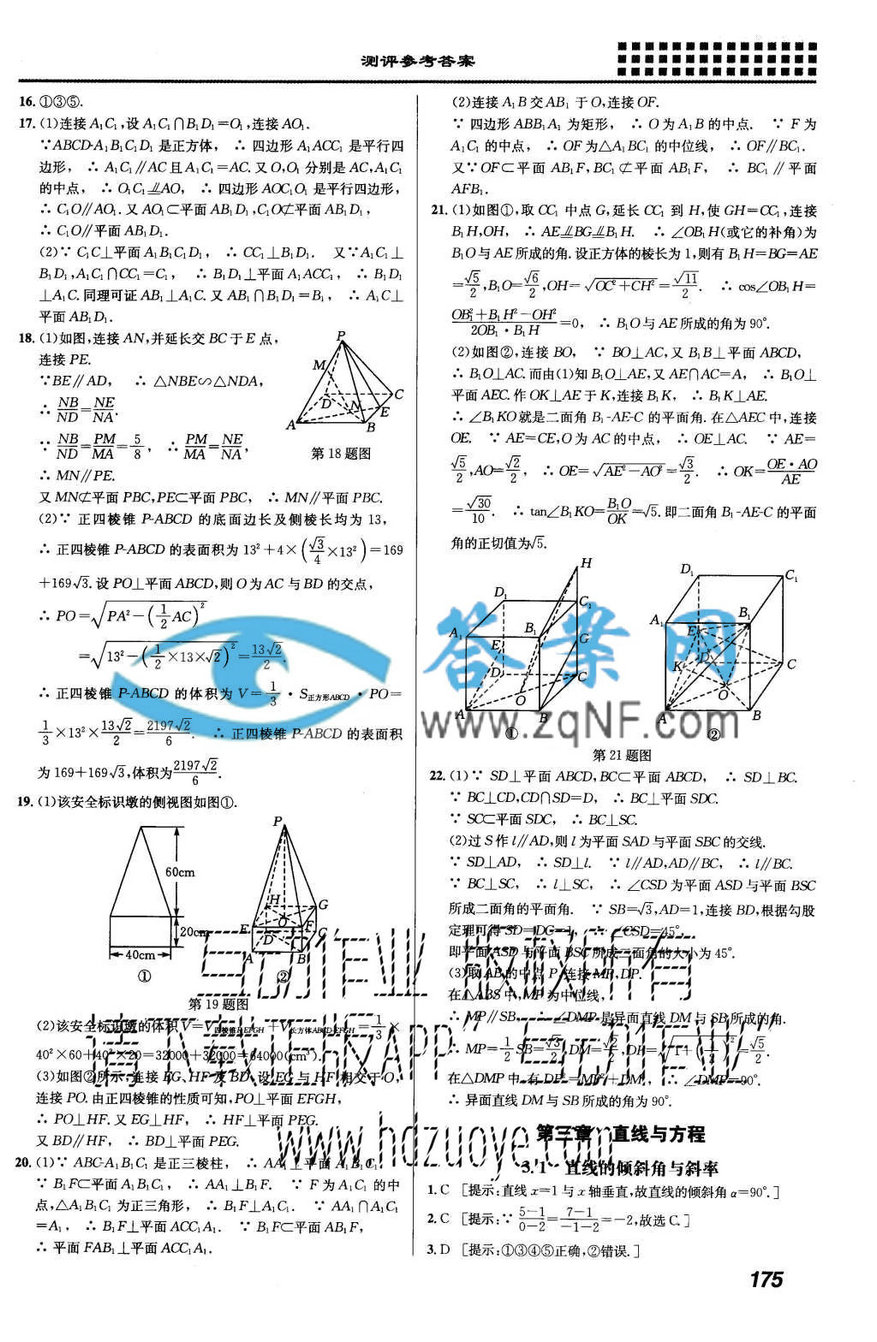 测评参考答案
16. ①③⑤.
17. (1)连接 A₁C₁,设 A₁C₁∩B₁D₁=O₁,连接 AO₁.
∵ABCD-A₁B₁C₁D₁ 是正方体, ∴ 四边形 A₁ACC₁ 是平行四
边形, ∴ A₁C₁∥AC 且 A₁C₁=AC. 又 O,O₁ 分别是 AC,A₁C₁
的中点, ∴ O₁C₁⊥∥AO, ∴ 四边形 AOC₁O₁ 是平行四边形,
∴ C₁O∥AO₁. 又 AO₁⊂平面 AB₁D₁,C₁O⊄平面 AB₁D₁,
∴ C₁O∥平面 AB₁D₁.
(2)∵ C₁C⊥平面 A₁B₁C₁D₁, ∴ CC₁⊥B₁D₁. 又∵A₁C₁⊥
B₁D₁,A₁C₁∩CC₁=C₁, ∴ B₁D₁⊥平面 A₁ACC₁, ∴ B₁D₁
⊥A₁C. 同理可证 AB₁⊥A₁C. 又 AB₁∩B₁D₁=B₁, ∴ A₁C⊥
平面 AB₁D₁.
18. (1)如图,连接 AN,并延长交 BC 于 E 点,
连接 PE.
∵BE∥AD, ∴ △NBE∽△NDA,
∴ NB/ND=NE/NA.
∵ NB/ND=PM/MA=5/8, ∴ PM/MA=NE/NA,
∴ MN∥PE.
P
M
D
C
N
E
A
B
第 18 题图
又 MN⊄平面 PBC,PE⊂平面 PBC, ∴ MN∥平面 PBC.
(2)∵ 正四棱锥 P-ABCD 的底面边长及侧棱长均为 13,
∴ 正四棱锥 P-ABCD 的表面积为 13²+4×(√3/4×13²)=169
+169√3. 设 PO⊥平面 ABCD,则 O 为 AC 与 BD 的交点,
∴ PO=√(PA²-(1/2 AC)²)
=√(13²-(1/2×13×√2)²)=13√2/2.
∴ 正四棱锥 P-ABCD 的体积为 V=1/3·S正方形ABCD·PO=
1/3×13²×13√2/2=2197√2/6. ∴ 正四棱锥 P-ABCD 的表面积
为 169+169√3,体积为2197√2/6.
19. (1)该安全标识墩的侧视图如图①.
60cm
20cm
40cm
①
P
H
G
O
E
F
D
C
A
B
②
第 19 题图
(2)该安全标识墩的体积 V=V四棱锥P-EFGH+V长方体ABCD-EFGH=1/3×
40²×60+40²×20=32000+32000=64000(cm³).
(3)如图②所示,连接 EG、HF 及 BD,设 EG 与 HF 相交于 O,
连接 PO. 由正四棱锥的性质可知,PO⊥平面 EFGH,
∴ PO⊥HF. 又 EG⊥HF, ∴ HF⊥平面 PEG.
又 BD∥HF, ∴ BD⊥平面 PEG.
20. (1)∵ ABC-A₁B₁C₁ 是正三棱柱, ∴ AA₁⊥平面 A₁B₁C₁,
∵ B₁F⊂平面 A₁B₁C₁, ∴ AA₁⊥B₁F. ∵ F 为 A₁C₁ 的中
点,△A₁B₁C₁ 为正三角形, ∴ B₁F⊥A₁C₁. ∵ AA₁∩A₁C₁
=A₁, ∴ B₁F⊥平面 ACC₁A₁. ∵ B₁F⊂平面 AB₁F,
∴ 平面 FAB₁⊥平面 ACC₁A₁.
(2)连接 A₁B 交 AB₁ 于 O,连接 OF.
∵ 四边形 ABB₁A₁ 为矩形, ∴ O 为 A₁B 的中点. ∵ F 为
A₁C₁ 的中点, ∴ OF 为△A₁BC₁ 的中位线, ∴ OF∥BC₁.
又∵ OF⊂平面 AB₁F,BC₁⊄平面 AB₁F, ∴ BC₁∥平面
AFB₁.
21. (1)如图①,取 CC₁ 中点 G,延长 CC₁ 到 H,使 GH=CC₁,连接
B₁H,OH, ∴ AE⊥∥BG⊥∥B₁H. ∴ ∠OB₁H(或它的补角)为
B₁O 与 AE 所成的角. 设正方体的棱长为 1,则有 B₁H=BG=AE
=√5/2,B₁O=√6/2,OH=√(OC²+CH²)=√11/2. ∴ cos∠OB₁H=
(OB₁²+B₁H²-OH²)/(2OB₁·B₁H)=0, ∴ B₁O 与 AE 所成的角为 90°.
(2)如图②,连接 BO, ∵ BO⊥AC,又 B₁B⊥平面 ABCD,
∴ B₁O⊥AC. 而由(1)知 B₁O⊥AE,又 AE∩AC=A, ∴ B₁O⊥
平面 AEC. 作 OK⊥AE 于 K,连接 B₁K, ∴ B₁K⊥AE.
∴ ∠B₁KO 就是二面角 B₁-AE-C 的平面角. 在△AEC 中,连接
OE. ∵ AE=CE,O 为 AC 的中点, ∴ OE⊥AC. ∵ AE=
√5/2,AO=√2/2, ∴ OE=√(AE²-AO²)=√3/2. ∴ OK=OE·AO/AE
=√30/10. ∴ tan∠B₁KO=B₁O/OK=√5. 即二面角 B₁-AE-C 的平面
角的正切值为√5.
H
D₁
C₁
A₁
B₁
G
E
D
C
O
A
B
①
D₁
C₁
A₁
B₁
E
D
K
C
O
A
B
②
第 21 题图
22. (1)∵ SD⊥平面 ABCD,BC⊂平面 ABCD, ∴ SD⊥BC.
∵ BC⊥CD,CD∩SD=D, ∴ BC⊥平面 SDC.
∵ SC⊂平面 SDC, ∴ BC⊥SC.
(2)过 S 作 l∥AD,则 l 为平面 SAD 与平面 SBC 的交线.
∵ SD⊥AD, ∴ SD⊥l. ∵ l∥AD,AD∥BC, ∴ l∥BC.
∵ BC⊥SC, ∴ l⊥SC, ∴ ∠CSD 为平面 ASD 与平面 BSC
所成二面角的平面角. ∵ SB=√3,AD=1,连接 BD,根据勾股
定理可得 SD=DC=1, ∴ ∠CSD=45°.
即平面 ASD 与平面 BSC 所成二面角的大小为 45°.
(3)取 AB 的中点 P,连接 MP,DP.
在△ABS 中,MP 为中位线,
∴ MP∥SB. ∴ ∠DMP 是异面直线 DM 与 SB 所成的角.
∴ MP=1/2 SB=√3/2,DM=√2/2,DP=√(1+(1/2)²)=√5/2.
在△DMP 中,有 DP²=MP²+DM², ∴ ∠DMP=90°.
∴ 异面直线 DM 与 SB 所成的角为 90°.
第三章 直线与方程
3.1 直线的倾斜角与斜率
1. C [提示:直线 x=1 与 x 轴垂直,故直线的倾斜角 α=90°.]
2. C [提示:∵ (5-1)/(0-2)=(7-1)/(-1-2)=-2,故选 C.]
3. D [提示:①③④⑤正确,②错误.]
175
答業网
www.zqNF.com
与动作业 版权所有
请下载正版APP“与动作业”
www.hdzuoye.com